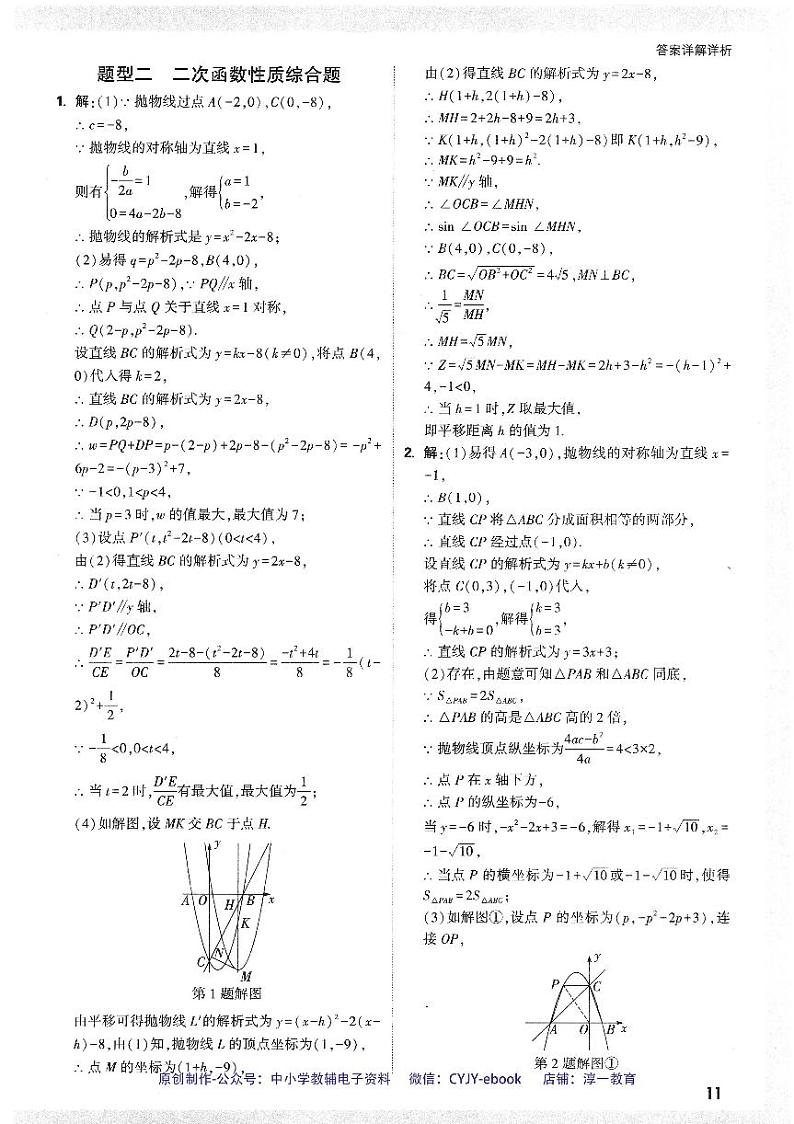 答案详解详析
题型二 二次函数性质综合题
1. 解:(1)∵抛物线过点A(-2,0),C(0,-8),
∴c=-8,
∵抛物线的对称轴为直线x=1,
则有{-b/2a=1, 0=4a-2b-8,解得{a=1, b=-2,
∴抛物线的解析式是y=x²-2x-8;
(2)易得q=p²-2p-8,B(4,0),
∴P(p,p²-2p-8),∵PQ∥x轴,
∴点P与点Q关于直线x=1对称,
∴Q(2-p,p²-2p-8).
设直线BC的解析式为y=kx-8(k≠0),将点B(4,
0)代入得k=2,
∴直线BC的解析式为y=2x-8,
∴D(p,2p-8),
∴w=PQ+DP=p-(2-p)+2p-8-(p²-2p-8)=-p²+
6p-2=-(p-3)²+7,
∵-1<0,1<p<4,
∴当p=3时,w的值最大,最大值为7;
(3)设点P'(t,t²-2t-8)(0<t<4),
由(2)得直线BC的解析式为y=2x-8,
∴D'(t,2t-8),
∵P'D'∥y轴,
∴P'D'∥OC,
∴D'E/CE=P'D'/OC=2t-8-(t²-2t-8)/8=-t²+4t/8=-1/8(t-
2)²+1/2,
∵-1/8<0,0<t<4,
∴当t=2时,D'E/CE有最大值,最大值为1/2;
(4)如解图,设MK交BC于点H.
y
A O H B x
K
C N
M
第1题解图
由平移可得抛物线L'的解析式为y=(x-h)²-2(x-
h)-8,由(1)知,抛物线L的顶点坐标为(1,-9),
∴点M的坐标为(1+h,-9),
由(2)得直线BC的解析式为y=2x-8,
∴H(1+h,2(1+h)-8),
∴MH=2+2h-8+9=2h+3,
∵K(1+h,(1+h)²-2(1+h)-8)即K(1+h,h²-9),
∴MK=h²-9+9=h².
∵MK∥y轴,
∴∠OCB=∠MHN,
∴sin∠OCB=sin∠MHN,
∵B(4,0),C(0,-8),
∴BC=√(OB²+OC²)=4√5,MN⊥BC,
∴1/√5=MN/MH,
∴MH=√5MN,
∵Z=√5MN-MK=MH-MK=2h+3-h²=-(h-1)²+
4,-1<0,
∴当h=1时,Z取最大值,
即平移距离h的值为1.
2. 解:(1)易得A(-3,0),抛物线的对称轴为直线x=
-1,
∴B(1,0),
∵直线CP将△ABC分成面积相等的两部分,
∴直线CP经过点(-1,0).
设直线CP的解析式为y=kx+b(k≠0),
将点C(0,3),(-1,0)代入,
得{b=3, -k+b=0,解得{k=3, b=3,
∴直线CP的解析式为y=3x+3;
(2)存在,由题意可知△PAB和△ABC同底,
∵S△PAB=2S△ABC,
∴△PAB的高是△ABC高的2倍,
∵抛物线顶点纵坐标为4ac-b²/4a=4<3×2,
∴点P在x轴下方,
∴点P的纵坐标为-6,
当y=-6时,-x²-2x+3=-6,解得x₁=-1+√10,x₂=
-1-√10,
∴当点P的横坐标为-1+√10或-1-√10时,使得
S△PAB=2S△ABC;
(3)如解图①,设点P的坐标为(p,-p²-2p+3),连
接OP,
y
P C
A O B x
第2题解图①
原创制作-公众号:中小学教辅电子资料 微信:CYJY-ebook 店铺:淳一教育
11